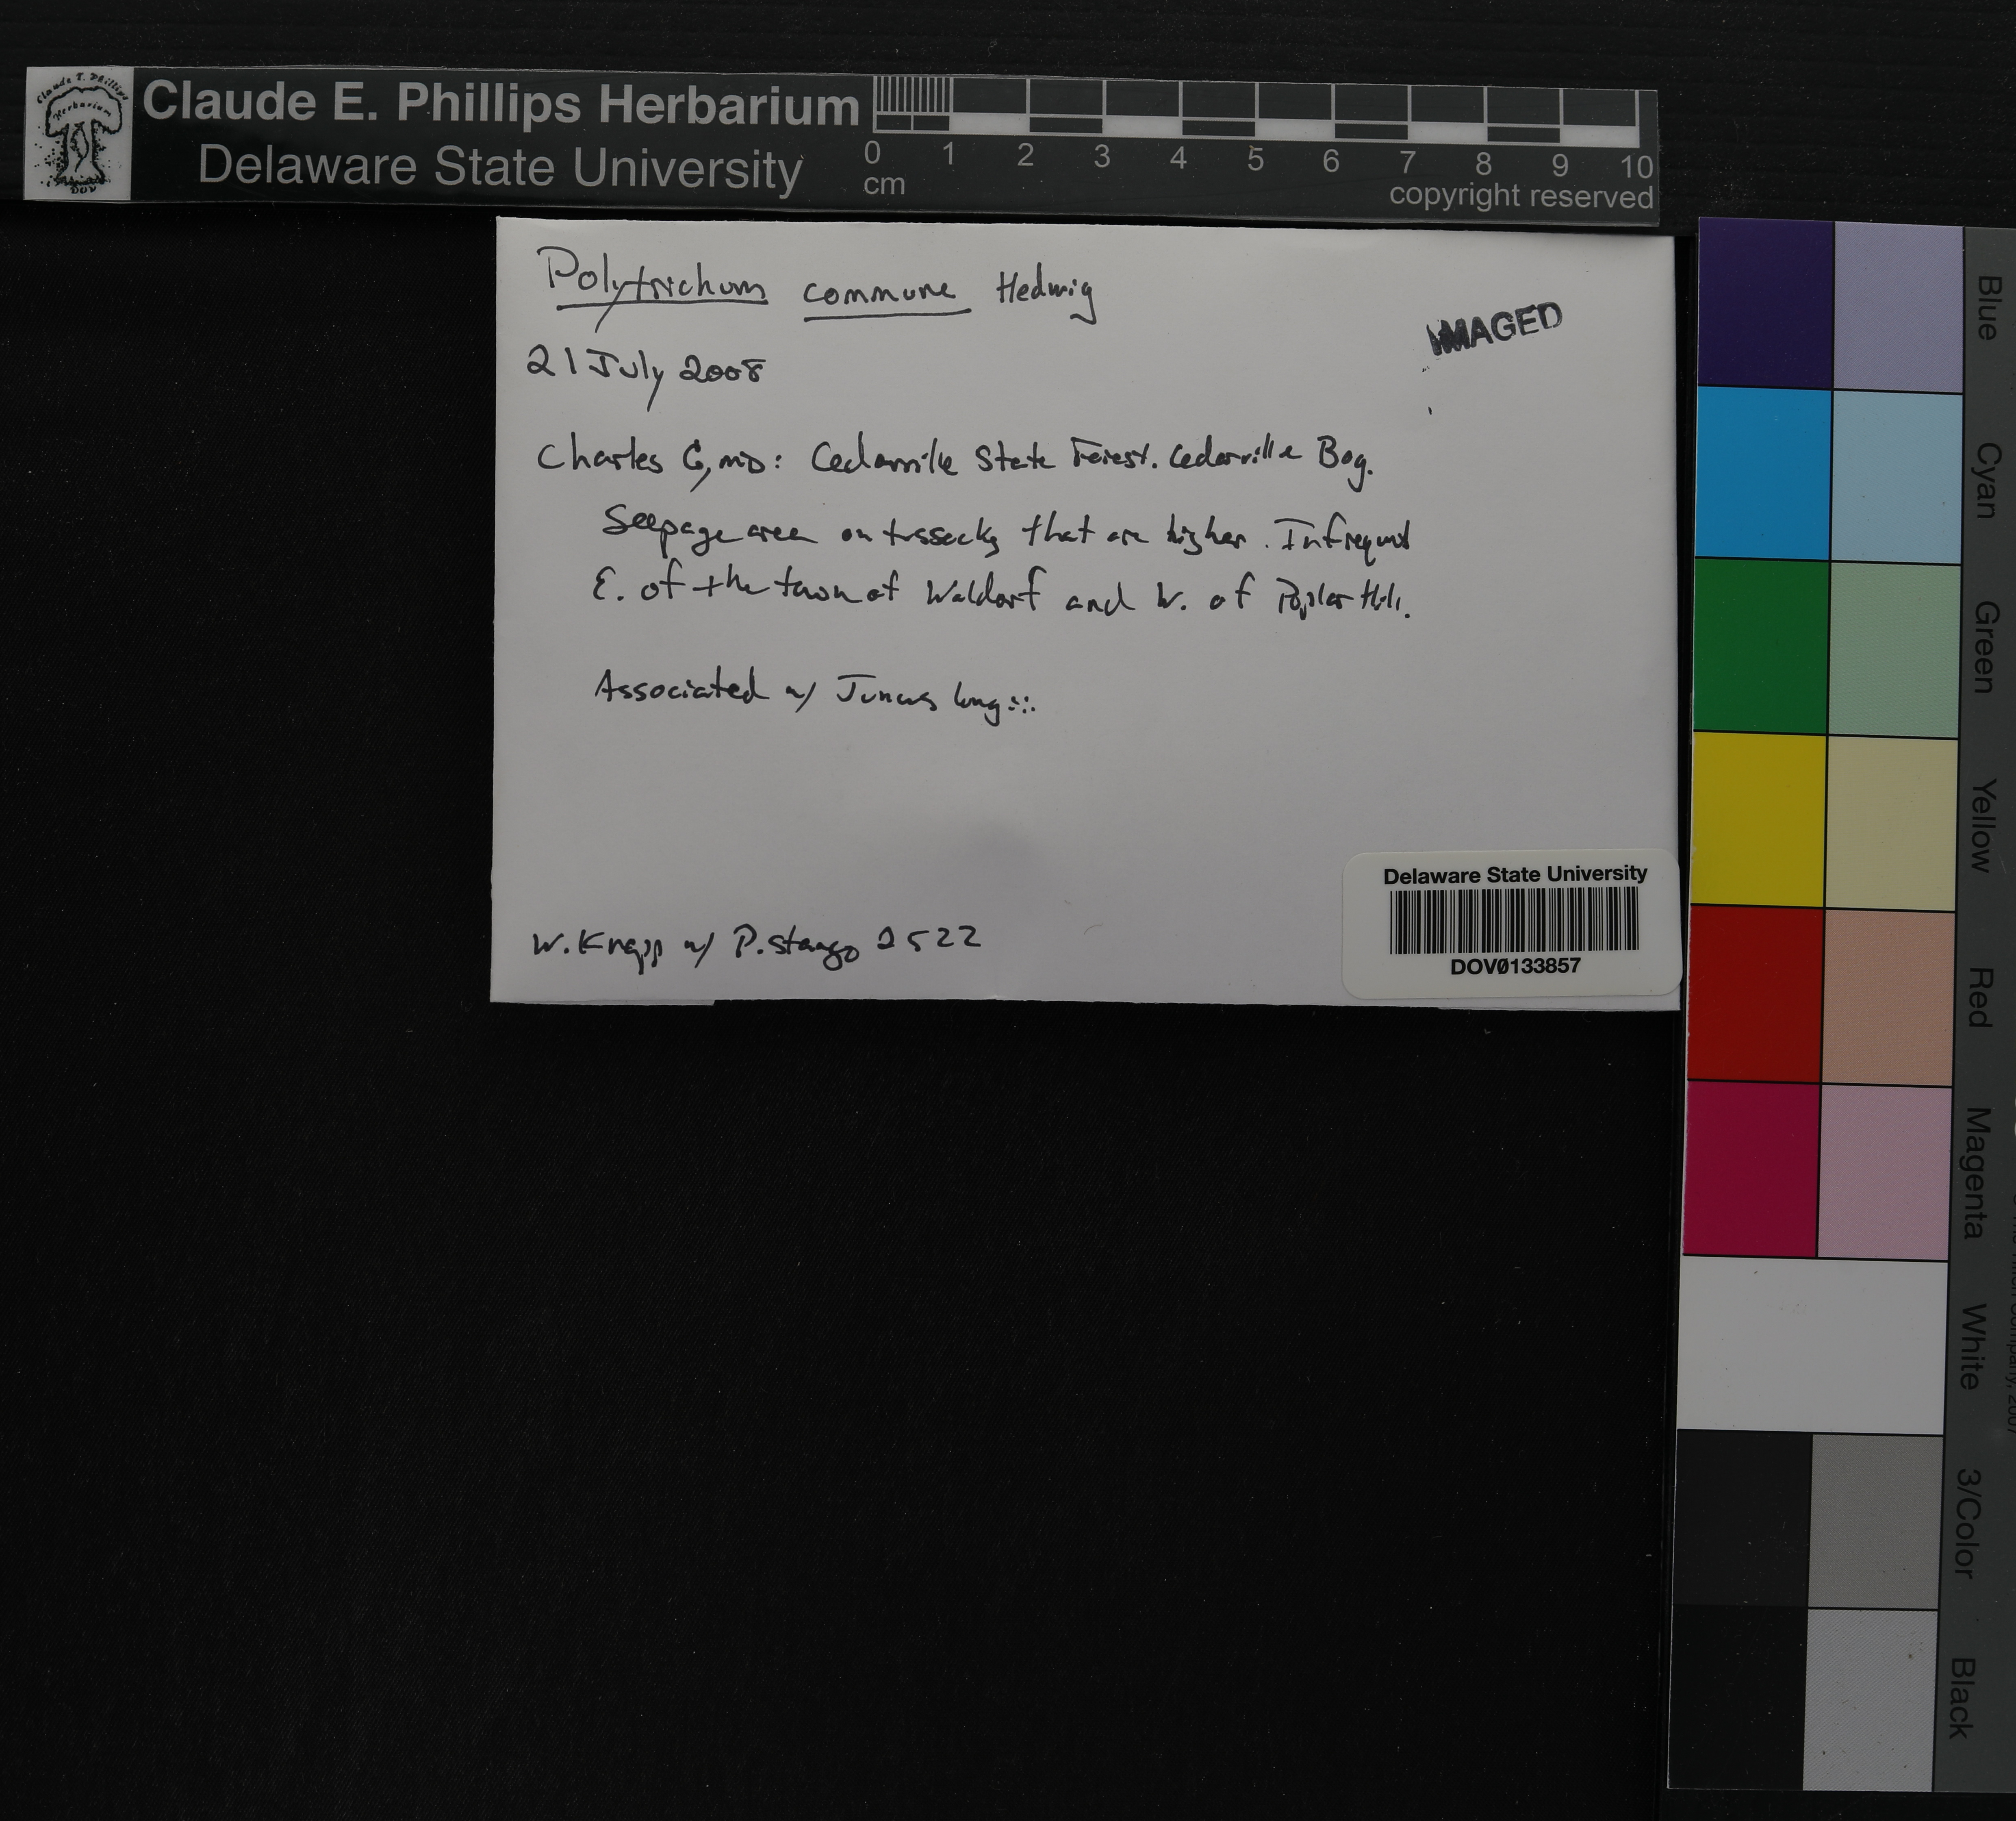 Claude E. Phillips Herbarium
Delaware State University
Claude E. Phillips Herbarium
DOV
0 1 2 3 4 5 6 7 8 9 10
cm
copyright reserved
Polytrichum commune Hedwig
IMAGED
21 July 2008
Charles G, MD: Cedarville State Forest. Cedarville Bog.
Seepage area on tussocks that are higher. Infrequent
E. of the town of Waldorf and W. of Poplar Hill.
Associated w/ Juncus longii.
W. Knapp w/ P. Stango 2522
Delaware State University
DOV0133857
Blue
Cyan
Green
Yellow
Red
Magenta
White
3/Color
Black